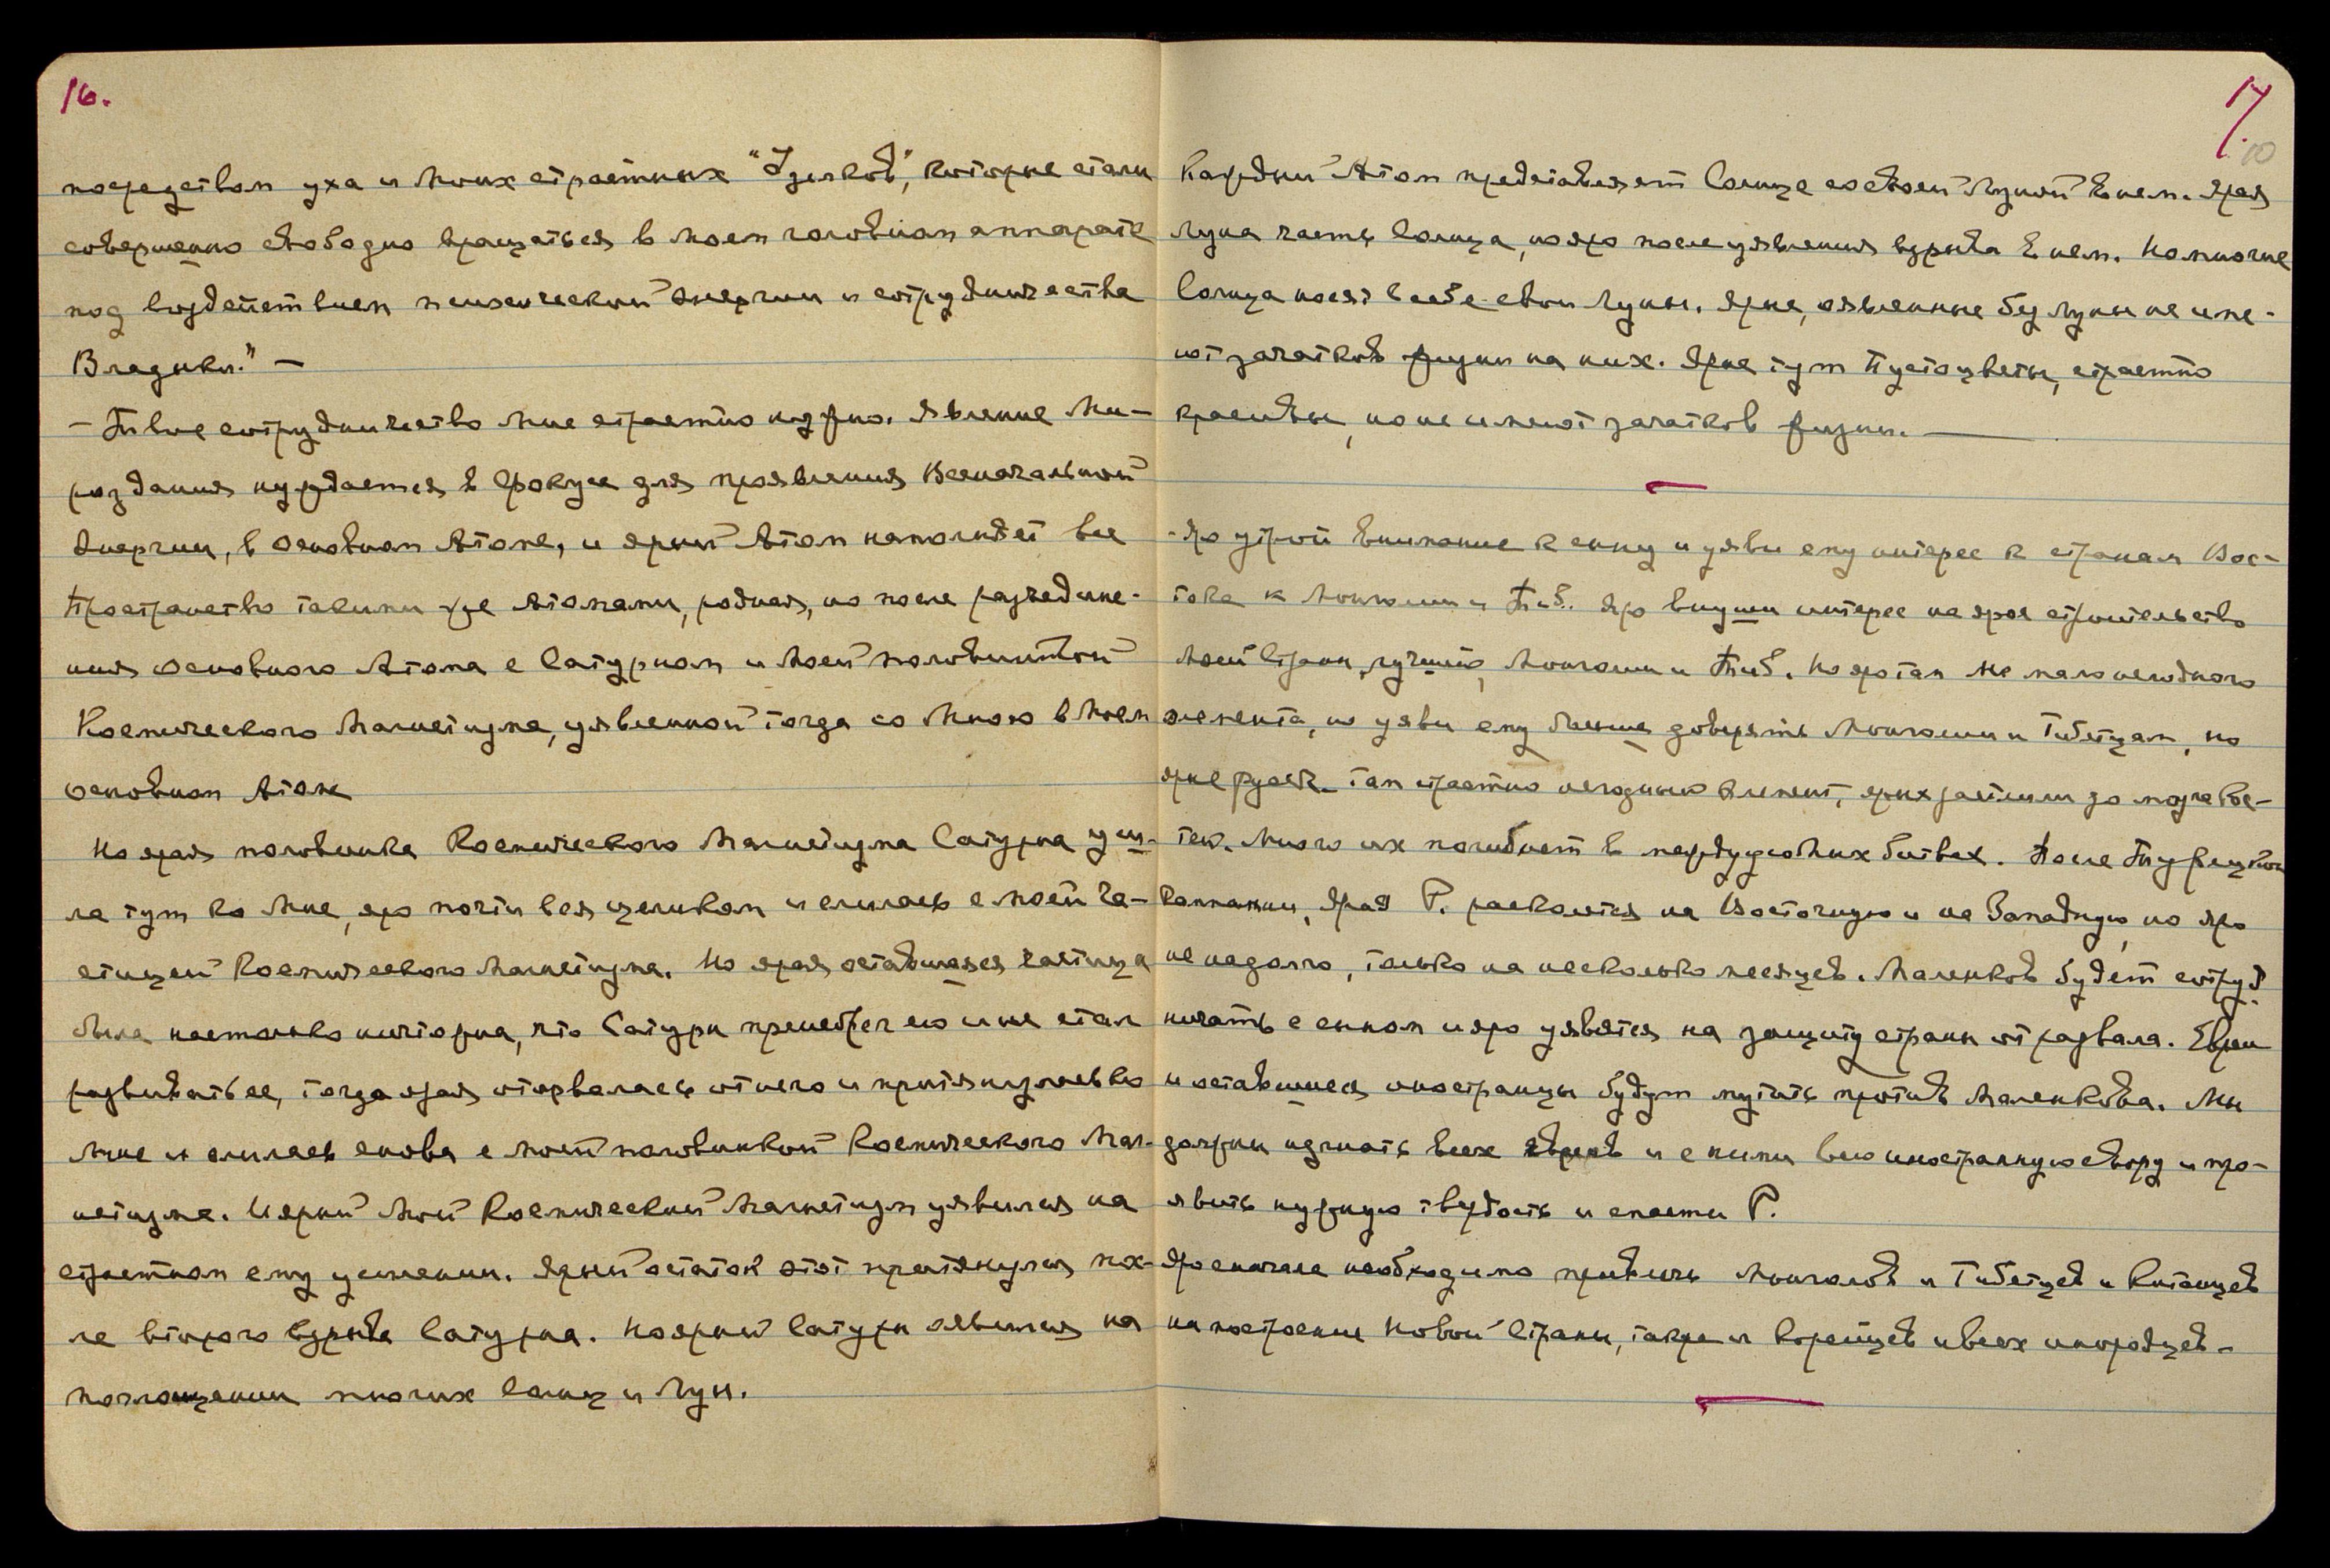 16.
посредством уха и Моих страстных "Узелков", которые стали
совершенно свободно вращаться в моем головном аппарате
под воздействием психической энергии и сотрудничества
Владыки." —
— Твое сотрудничество Мне страстно нужно. Явление Ми-
роздания нуждается в Фокусе для проявления Всеначальной
Энергии, в основном Атоме, и ярый Атом наполняет все
Пространство такими же Атомами, родная, но после разъедине-
ния основного Атома с Сатурном и Моей половинкой
Космического Магнетизма, уявленной тогда со Мною в Моем
основном Атоме
Но ярая половинка Космического Магнетизма Сатурна уш-
ла тут ко Мне, яро почти вся целиком и слилась с моей ча-
стицей Космического Магнетизма. Но ярая оставшаяся частица
была настолько ничтожна, что Сатурн пренебрег ею и не стал
развивать ее, тогда ярая оторвалась от него и притянулась ко
Мне и слилась снова с моей половинкой Космического Маг-
нетизма. И ярый Мой Космический Магнетизм уявился на
страстном ему усилении. Ярый остаток этот притянулся пос-
ле второго взрыва Сатурна. Но ярый Сатурн оявится на
поглощении многих Солнц и Лун.
17
10
Каждый Атом представляет Солнце со своей Луной в нем. Ярая
Луна часть Солнца, но яро после уявления взрыва в нем. Но многие
Солнца носят в себе свои Луны. Ярые, оявленные без Луны не име-
ют зачатков жизни на них. Ярые тут Пустоцветы, страстно
красивы, но не имеют зачатков жизни. —
- Яро утрой внимание к сыну и уяви ему интерес к странам Вос-
тока к Монголии и Тиб.. Яро внуши интерес на ярое строительство
Моей Страны, лучшей, Монголии и Тиб. Но яро там не мало негодного
элемента, но уяви ему больше доверять Монголии и Тибетцам, но
не русск. Там страстно негодный элемент, ярых застили до мозга кос-
тей. Много их погибнет в предуходящих битвах. После Турецкой
Кампании, Ярая Р. расколется на Восточную и на Западную, но яро
не надолго, только на несколько месяцев. Маленков будет сотруд-
ничать с сыном и яро уявятся на защиту страны от развала. Евреи
и оставшиеся иностранцы будут мутить против Маленкова. Мы
должны изгнать всех евреев и с ними всю иностранную свору и про-
явить нужную твердость и спасти Р.
Яро сначала необходимо привлечь Монголов и Тибетцев и Китайцев
на построение Новой Страны, также и Корейцев и всех инородцев -